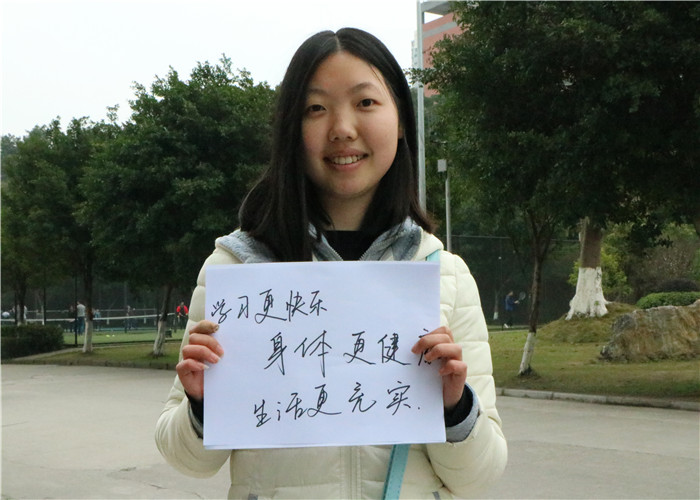 学习更快乐
身体更健康
生活更充实.